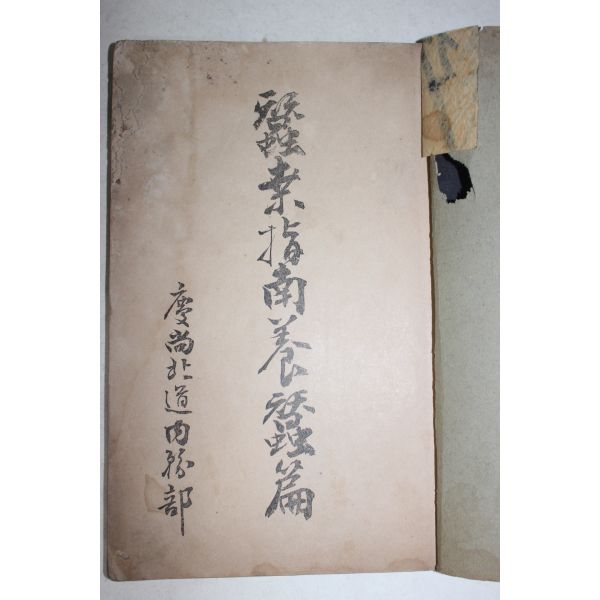 蠶業指南養蠶篇
慶尚北道内務部